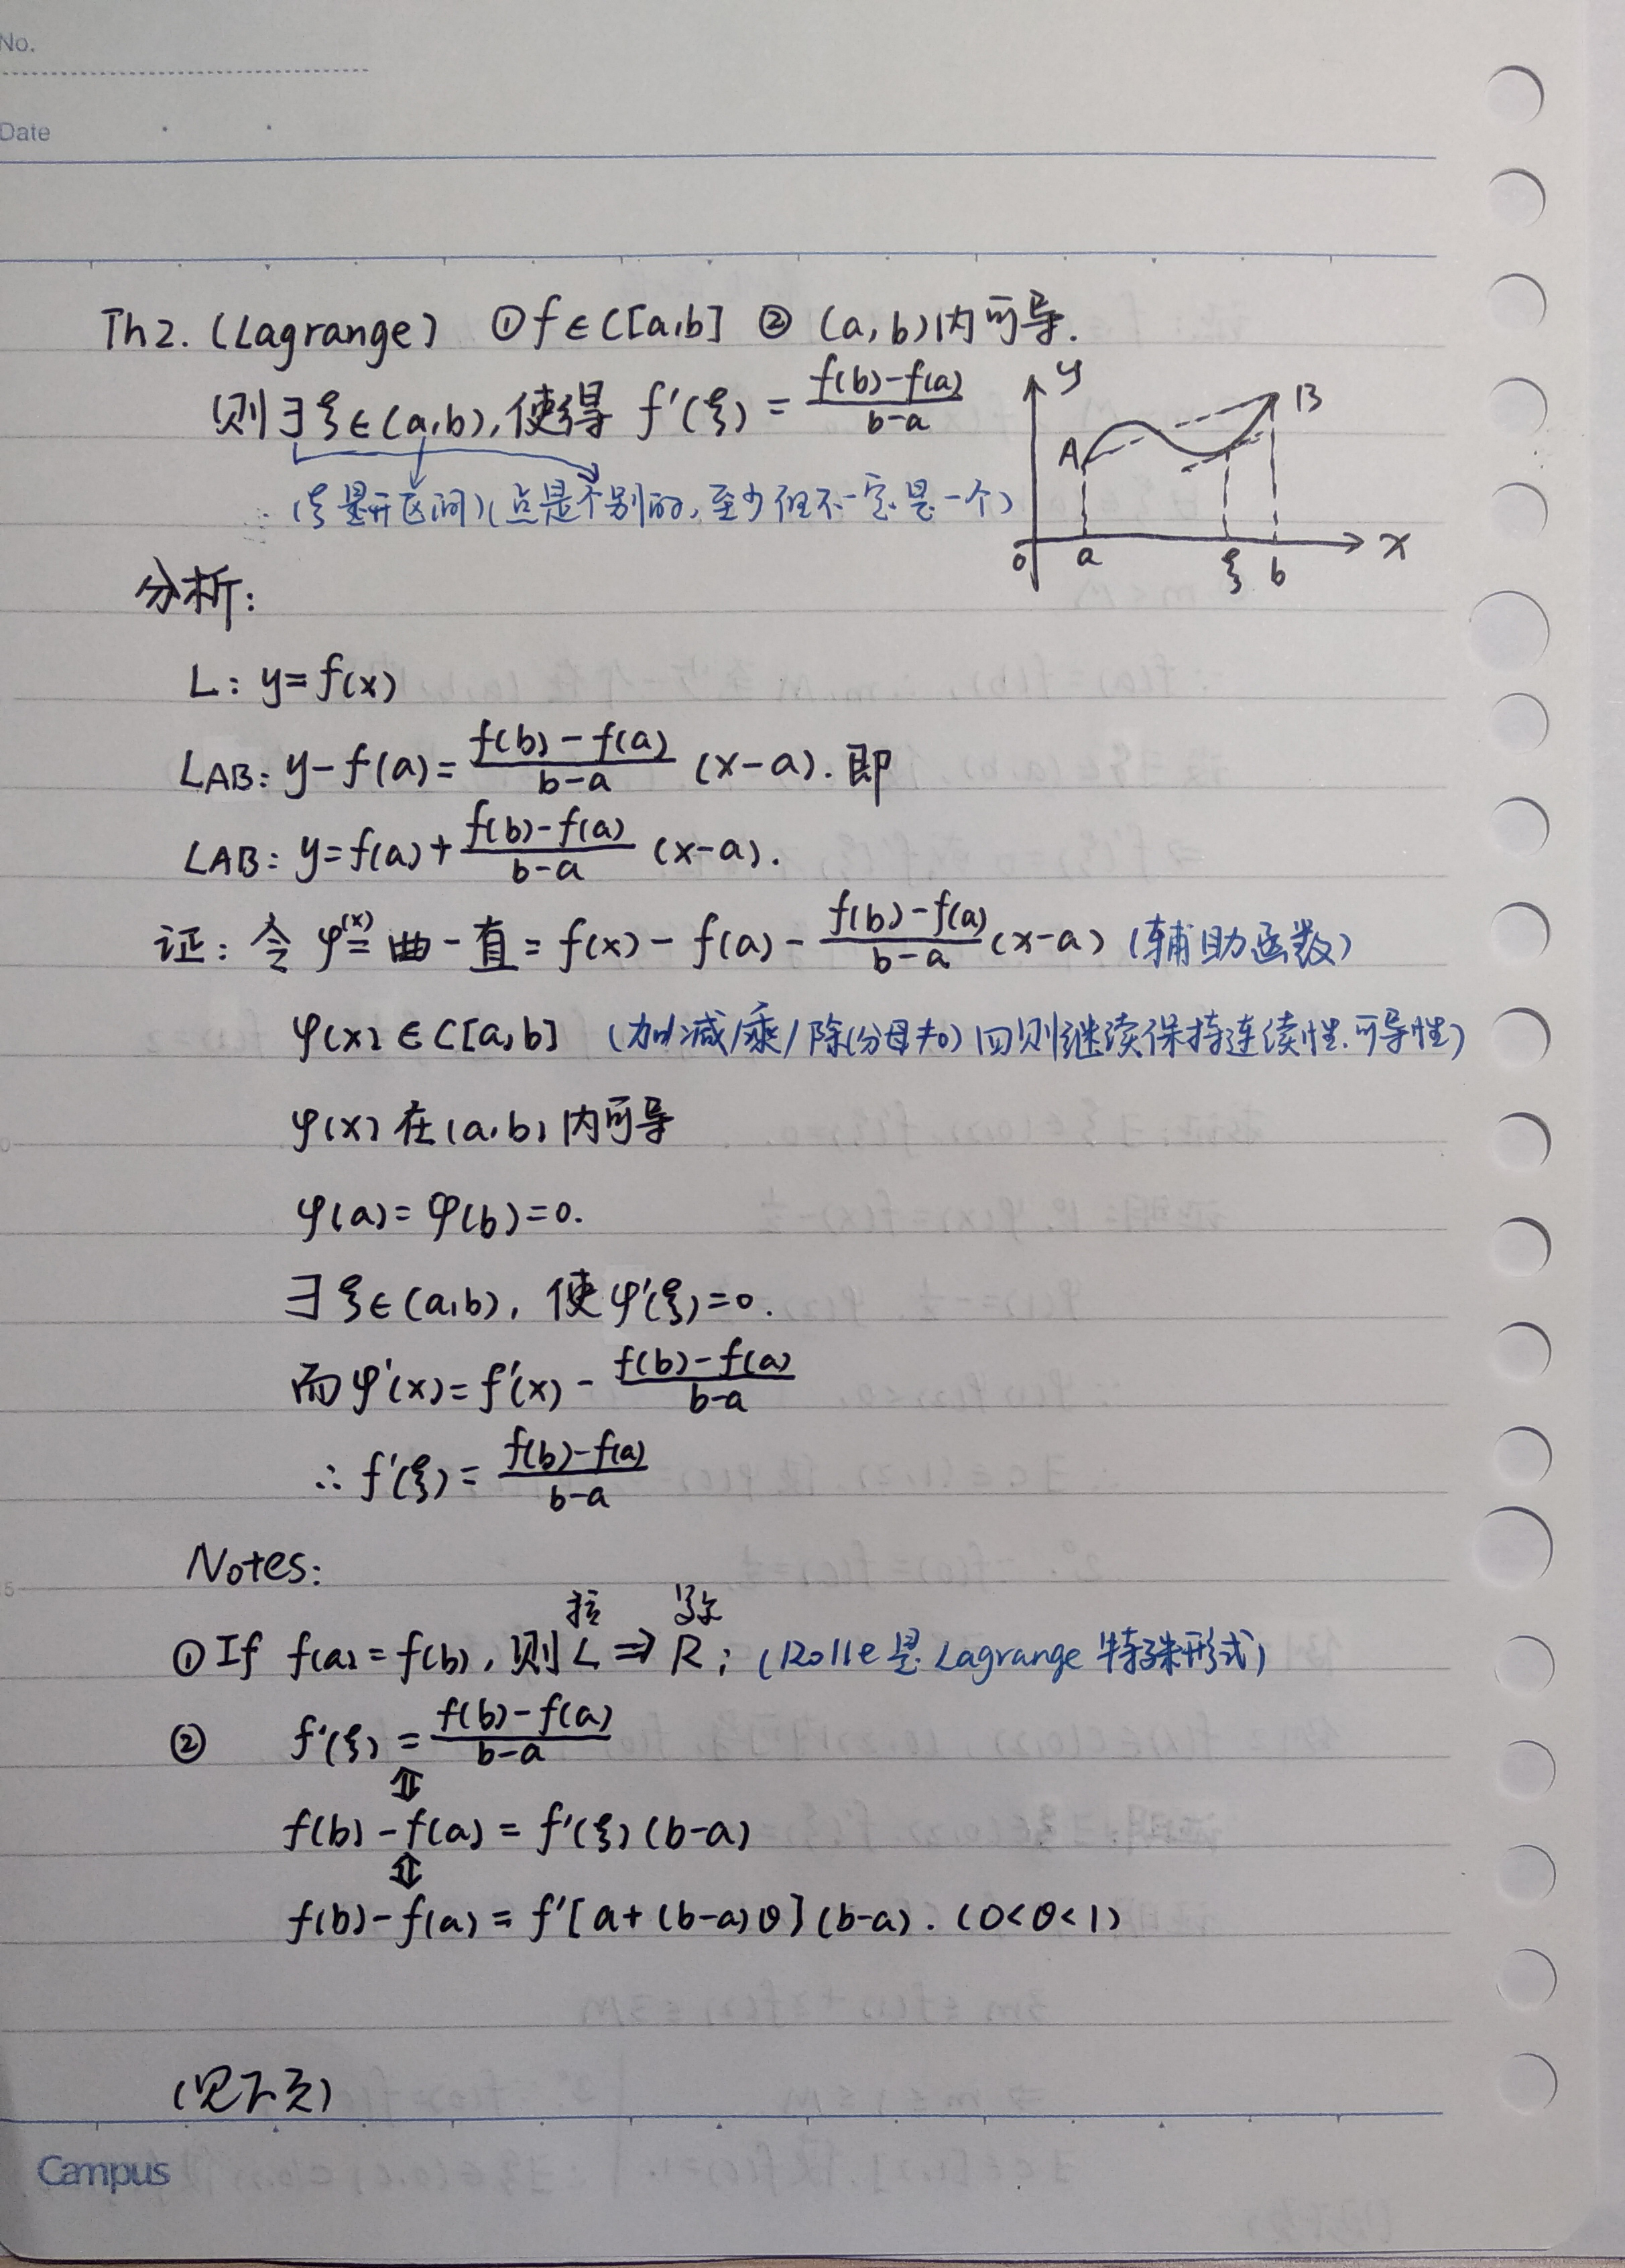 No.
Date
Th2. (Lagrange) ①f∈C[a,b] ② (a,b)内可导.
则∃ξ∈(a,b),使得 f'(ξ) = \frac{f(b)-f(a)}{b-a}
(ξ是开区间)(点是个别的,至少但不一定是一个)
y
B
A
0 a ξ b x
分析:
L: y=f(x)
L_{AB}: y-f(a)=\frac{f(b)-f(a)}{b-a}(x-a). 即
L_{AB}: y=f(a)+\frac{f(b)-f(a)}{b-a}(x-a).
证: 令 φ(x)=曲-直=f(x)-f(a)-\frac{f(b)-f(a)}{b-a}(x-a) (辅助函数)
φ(x)∈C[a,b] (加/减/乘/除(分母≠0)四则继续保持连续性.可导性)
φ(x)在(a,b)内可导
φ(a)=φ(b)=0.
∃ξ∈(a,b), 使φ'(ξ)=0.
而φ'(x)=f'(x)-\frac{f(b)-f(a)}{b-a}
∴f'(ξ)=\frac{f(b)-f(a)}{b-a}
Notes:
拉 罗尔
①If f(a)=f(b),则L⇒R; (Rolle是Lagrange特殊形式)
② f'(ξ)=\frac{f(b)-f(a)}{b-a}
⇕
f(b)-f(a)=f'(ξ)(b-a)
⇕
f(b)-f(a)=f'[a+(b-a)θ](b-a). (0<θ<1)
(见下页)
Campus